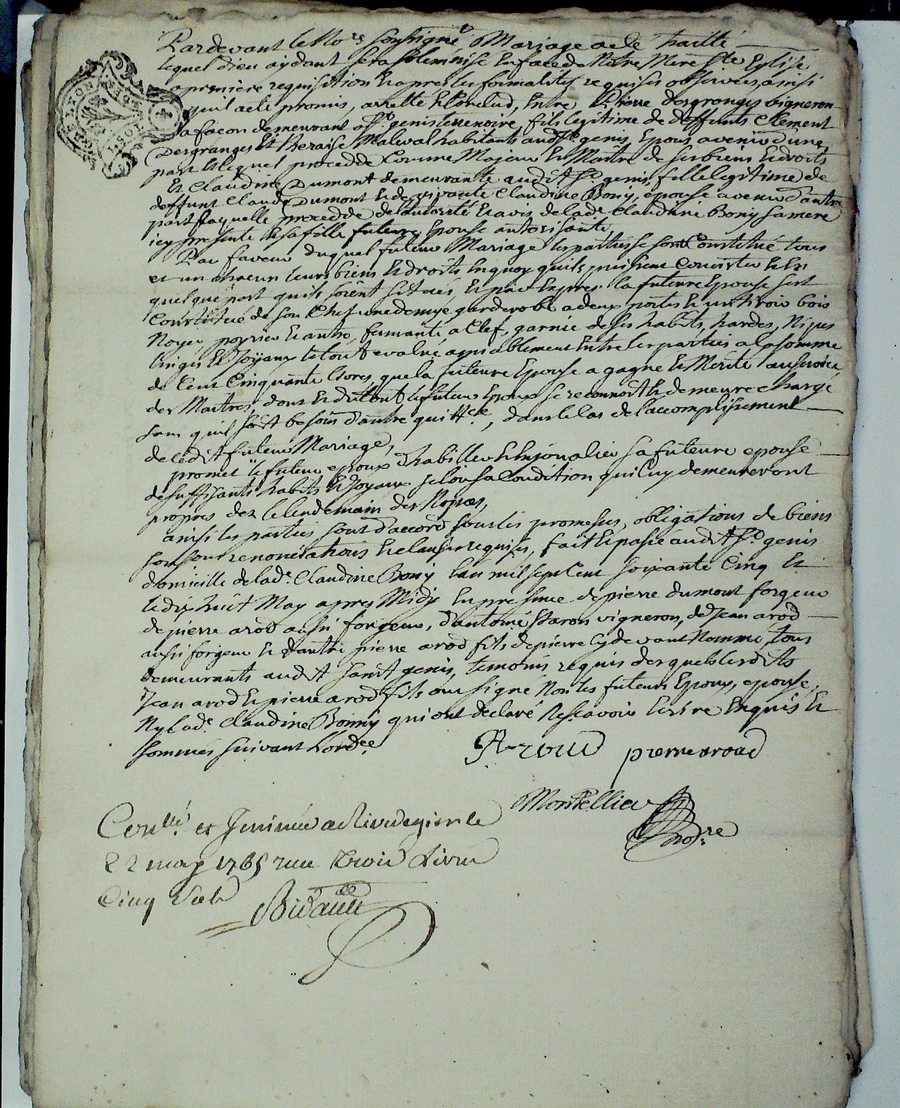 Pardevant le No.re soussigné Mariage a été traitté
lequel dieu aydant sera solemnisé en face de Notre Mere Ste Eglise
a premiere requisition et apres les formalités requises observées ainsi
quil a été promis, arrette et Conclud, Entre Pierre desgranges vigneron
a façon demeurant a St genis terrenoire, fils legitime de deffunts Clement
Desgranges et heraise Maleval habitants audt St genis Epoux avenir d'une
part lequel procedde Comme Majeur et Maitre de ses biens et droits
Et Claudine Dumont demeurante audit St genis fille legitime de
deffunt Claude Dumont et de vivante Claudine Bony, epouse avenir d'autre
part laquelle procedde de l'autorité et avis de lade Claudine Bony sa mere
icy presente et sa fille future epouse autorisante
En faveur duquel futur Mariage les parties se sont Constitué tous
et un chacun leurs biens et droits en quoy quils puissent Consister et En
quelque part quils soient situés, Et par Expres la future Epouse sest
Constituée de son Chef une demye garderobe a deux portes et un tiroir bois
Noyer poyrier et autre, fermante a Clef, garnie de ses habits, hardes, Nipes
linges et Joyaux le tout evalué agreablement entre les parties a la somme
de Cent Cinquante livres que la future Epouse a gagné et Merité au service
des Maitres, dont et du tout le futur Epoux se reconnoit et demeure chargé
sans quil soit besoin d'autre quittce, dans le cas de l'accomplissement
de ledit futur Mariage,
promet le futur epoux d'habiller et enjoailler sa future epouse
de suffisants habits et Joyaux selon sa Condition qui luy demeureront
propres dez le lendemain des Nopces,
ainsi les parties sont d'accord sous les promesses, obligations de biens
soumissions renonciations et clauses requises, fait et passé audit St genis
domicille de lade Claudine Bony l'an mil sept Cent soixante Cinq Et
le dix huit May apres Midy En presence de pierre dumont forgeur
de pierre arod aussi forgeur, d'antoine Staron vigneron, de Jean arod
aussi forgeur et d'autre pierre arod fils de pierre cy devant Nommé tous
demeurants audit saint genis, temoins requis desquels lesdits
Jean arod et pierre arod fils ont signé Non les futurs Epoux, epouse,
Ny lade Claudine Bonny qui ont declaré ne scavoir Ecrire Enquis Et
sommés suivant l'ordce
pierre aroud
Montellier
no.re
Conllé et Insinué a Rivedegier le
22 may 1765 reçu trois Livres
Cinq sols
Bidault